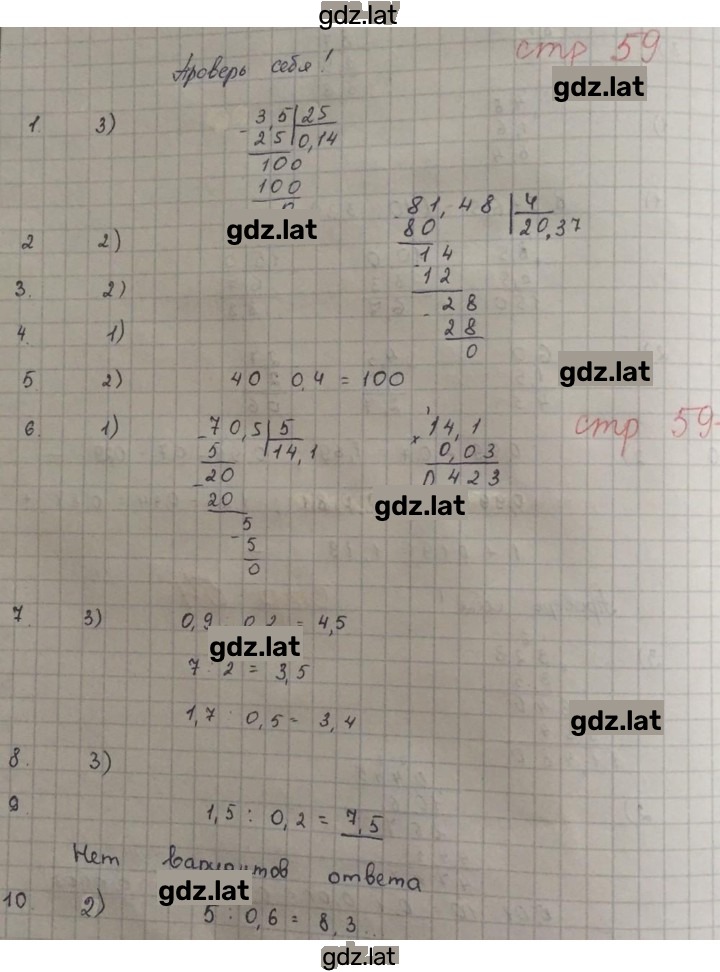 gdz.lat
стр 59
Проверь себя!
gdz.lat
1. 3)
3,5 | 25
- 25 | 0,14
100
100
0
gdz.lat
81,48 | 4
- 80 | 20,37
14
- 12
28
- 28
0
2 2)
3. 2)
4. 1)
gdz.lat
5 2) 40 : 0,4 = 100
стр 59
6. 1)
- 70,5 | 5
5 | 14,1
- 20
20
5
- 5
0
1
× 14,1
0,03
0423
gdz.lat
7 3) 0,9 0,2 = 4,5
gdz.lat
7 : 2 = 3,5
1,7 : 0,5 = 3,4
gdz.lat
8. 3)
9 1,5 : 0,2 = 7,5
Нет вариантов ответа
gdz.lat
10. 2) 5 : 0,6 = 8,3...
gdz.lat